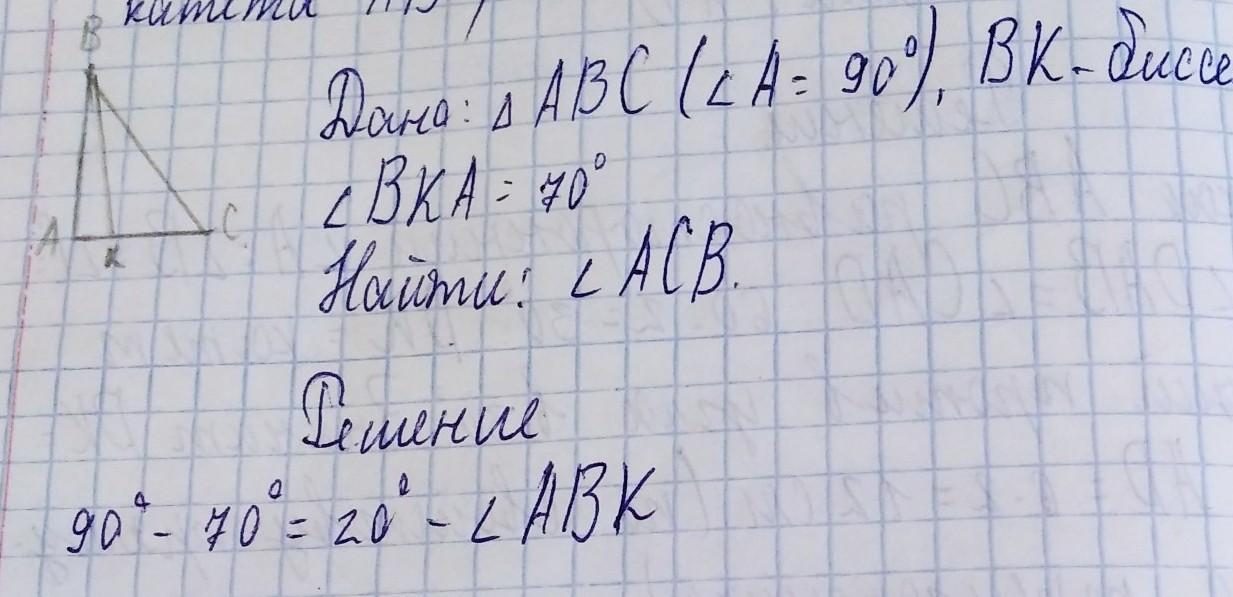 катета
B
Дано: △ ABC (∠ A = 90°), BK - биссе
∠ BKA = 70°
A K C
Найти: ∠ ACB.
Решение
90° - 70° = 20° - ∠ ABK